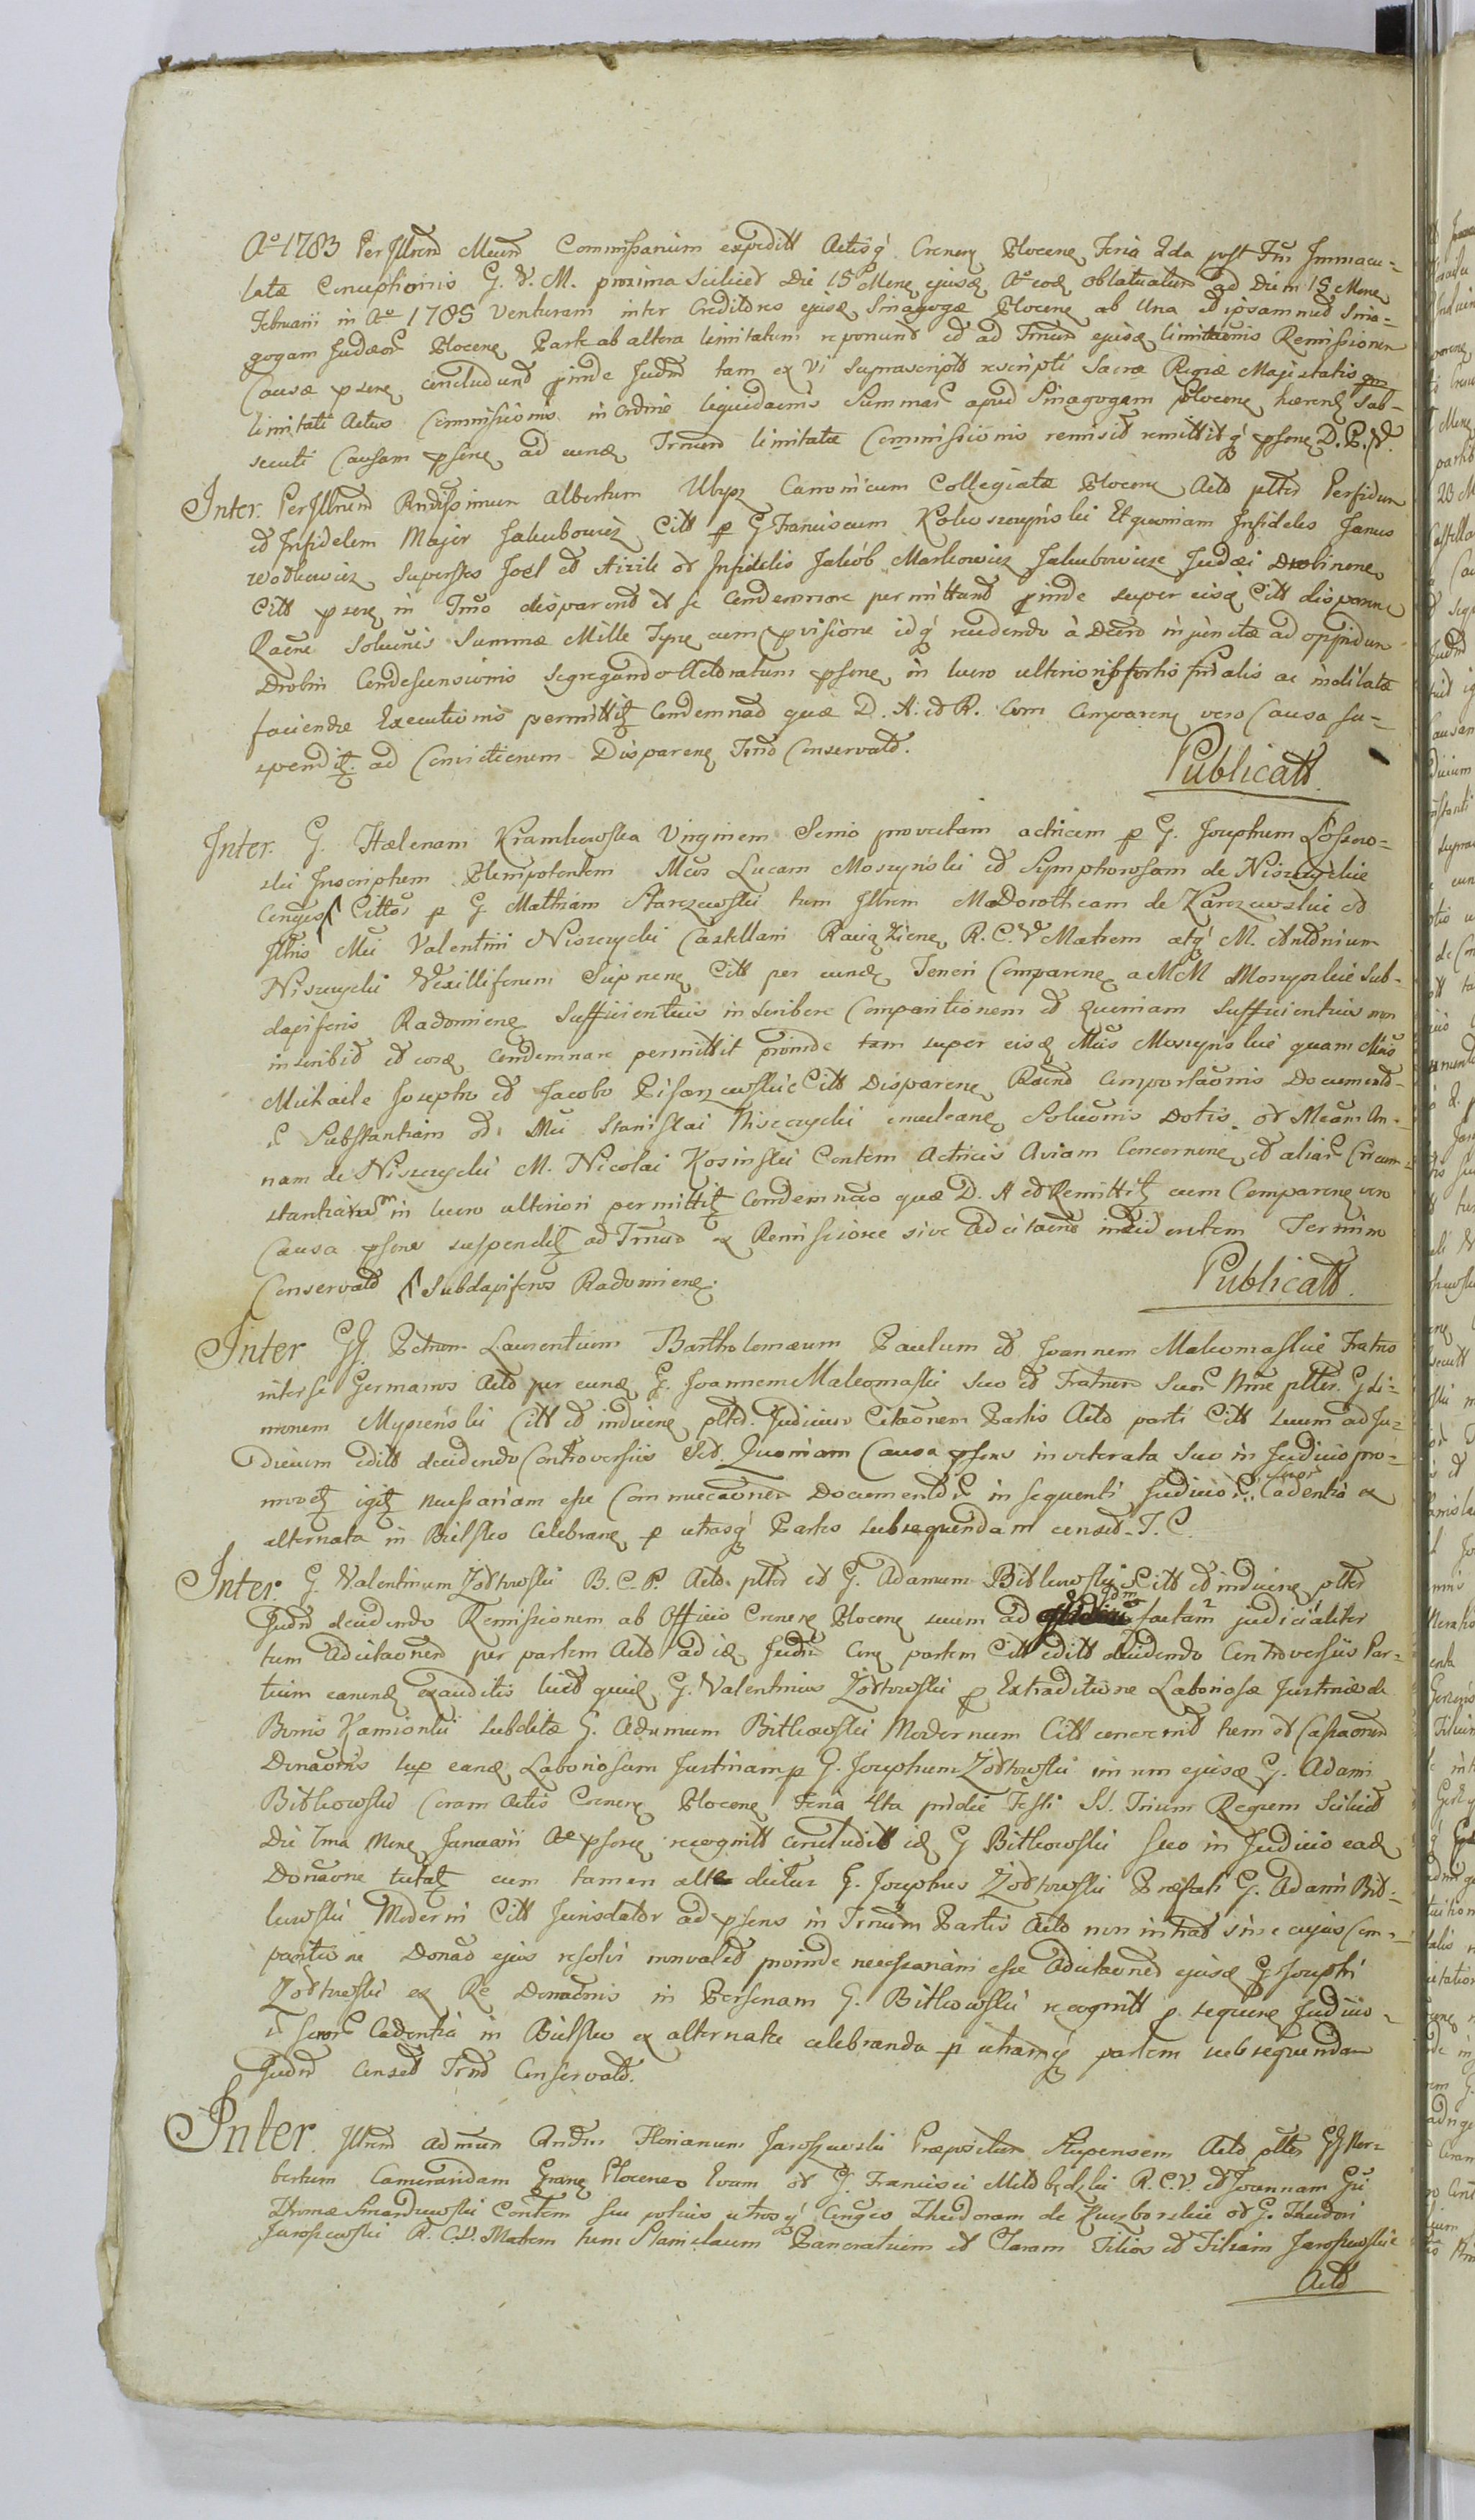 Aº 1783 Per Illrem Mcum Commissarium expeditt Actisq́ Crensq Plocensq Feria 2da post Ftm Immacu=
latæ Conceptionis G. V. M. proxima scilicet Die 15 Mensq ejusq Aº eodq oblatuatum ad Diem 15 Mensq
Februarii in Aº 1785 venturam inter Creditores ejusq Sinagogæ Plocensq ab una et ipsammet Sina=
gogam Judæor Plocensq Parte ab altera limitatum reponunt et ad Tmum ejusq limitaonis Remissionem
Causæ psensq concludunt pinde Judm tam ex vi suprascripti rescripti Sacræ Regiæ Majestatis
limitati Actus Commissionis in ordine liquidaonis Summar apud Sinagogam Plocensq hærensq sub=
secuti Causam psensq ad eundq Tmum limitatæ Commissionis remisit remittitq́ psensq D. P. V.
Inter. Per Illrem Rndissimum Albertum Ulysz Canonicum Collegiatæ Plocensq Actd pltes Perfidum
et Infidelem Majer Jakubowicz Citt p G Franciscum Kolwszczynski Et quoniam Infideles Janus
Wodkowicz superstes Joel et Aizik et Infidelis Jakób Markowicz Jakubowicze Judæi Drobinenses
Citt psensq in Tmo disparent et se condemnare permittunt pinde super eisq Citt disparensq
Raone soluonis Summæ Mille Tynf cum pvisione idq́ reddendo à Decreto injunctæ ad oppidum
Drobin Condescensionis segregando Actoratum psensq in lucro ulterioris fortis finalis ac militatæ
faciendæ Executionis permittitq Condemnad quæ D. A. et R. Cum Comparensq vero Causa su=
spenditq ad Convictionem Disparensq Tmo Conservato.
Publicatt.
Inter. G. Helenam Kramkowska Virginem Senio provectam actricem p G. Josephum Lossow=
ski Inscriptum Plenipotentem Mcos Lucam Moszynski et Symphorosam de Niszczyckie
Conges Cittos p G. Mathiam Starczewski tum Illrem M. Dorotheam de Karczewskie et
Illris Mci Valentini Niszczycki Castellani Raciążensq R. C. V. Matrem atq́ M. Antonium
Niszczycki Vexilliferum Sieprcensq Citt per eundq Teneri Comparensq a MM Moszynskie Sub-
dapiferis Radomiensq sufficientius inscribere Comparitionem et quoniam sufficientius non
inscribit et eosq condemnare permittit proinde tam super eisq Mcis Moszynskie quam Mcis
Michaele Josepho et Jacobo Pisarzewskie Citt Disparensq Raone Comportaonis Document
r Substantiam od: Mci Stanislai Niszczycki emuleansq Soluonis Dotis. et Mcam An-
nam de Niszczycki M. Nicolai Kosinski Contem Actricis Aviam Concernensq et aliar Circum-
stantiarum in lucro ulteriori permittitq Condemnao quæ D. A et Remittitq cum Comparensq vero
Causa psens suspenditq ad Tmum ex Remissione sive Adcitaone incidentem Termino
Conservato Subdapiferos Radomiensq.
Publicatt.
Inter GG. Petrum Laurentium Bartholomæum Paulum et Joannem Malomaskie Fratres
inter se Germanos Actd per eundq G. Joannem Malomaski suo et Fratrum suor Nme pltes. G Si=
monem Mysrenski Citt et inducensq pltd. Judicium Citaonem Partis Actd parti Citt suum ad Ju=
dicium editt decidendo Controversiis Sed Quoniam Causa psens inveterata suo in Judicio pro=
movetq igitq necessariam esse Communicaonem Documentor in sequenti Judicior Cadentia ex
alternata in Bielsko Celebransq p utrasq́ Partes subsequendam censet T. C.
Inter. G. Valentinum Zółtowski B. C. P. Actd pltes et G. Adamum Bitkowski Citt et inducensq pltd
Judm decidendo Remissionem ab Officio Crensq Plocensq suum ad factam judicialiter
tum Adcitaonem per partem Actd ad idq Judm Conq partem Citt editt decidendo Controversiis Par=
tium earundq exauditis licet quidq G. Valentinus Zółtowski p Extraditione Laboriosæ Justinæ de
Bonis Kamionki subditæ G. Adamum Bitkowski Modernum Citt convenit tum et Cassaonem
Donaonis sup eandq Laboriosam Justinam p G. Josephum Zółtowski in rem ejusq G. Adami
Bitkowski Coram Actis Crensq Plocensq Feria 4ta pridie Festi SS. Trium Regum Scilicet
Die 5ta Mensq Januarii Aº psensq recognitt concludit idq G Bitkowski suo in Judicio eadq
Donaone tutatq cum tamen alte dictus G. Josephus Zółtowski Præfati G. Adami Bit-
kowski Moderni Citt Jurisdator ad psens in Tmum Partis Actd non intrat sine cujus Com-
paritione Donao ejus resolvi non valet proinde necessariam esse Adcitaonem ejusq G Josephi
Zółtowski ex Re Donaonis in Personam G. Bitkowski recognitt p sequensq Judicio-
r suor Cadentia in Bielsko ex alternata celebranda p utramq́ partem subsequendam
Judm censet Tmo Conservato.
Inter. Illrem admum Rndum Florianum Jaroszewski Præpositum Stupensem Actd pltes GG Nor=
bertum Camerandam Gransq Plocensq Evam et G. Francisci Miłobędzki R.C.V. et Joannam Gsi
Thomæ Smardzewski Contem seu potius utrosq́ Conges Theodoram de Kuczborskie et G. Theodori
Jaroszewski R. C.V. Matrem tum Stanislaum Pancratium et Claram Filios et Filiam Jaroszewskie
Actd